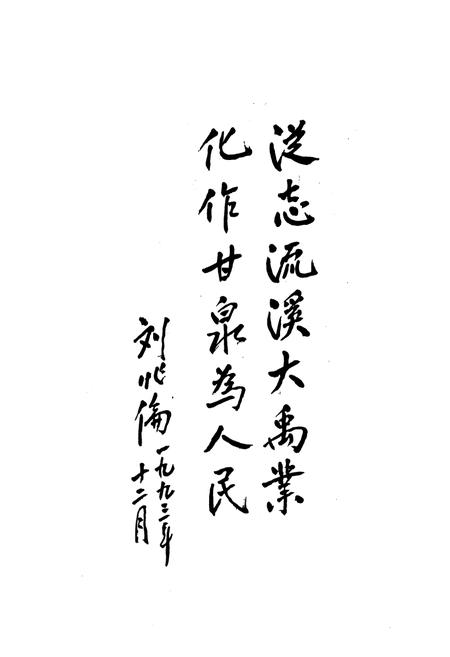 從志流溪大禹業
化作甘泉為人民
刘兆倫
一九九三年
十二月